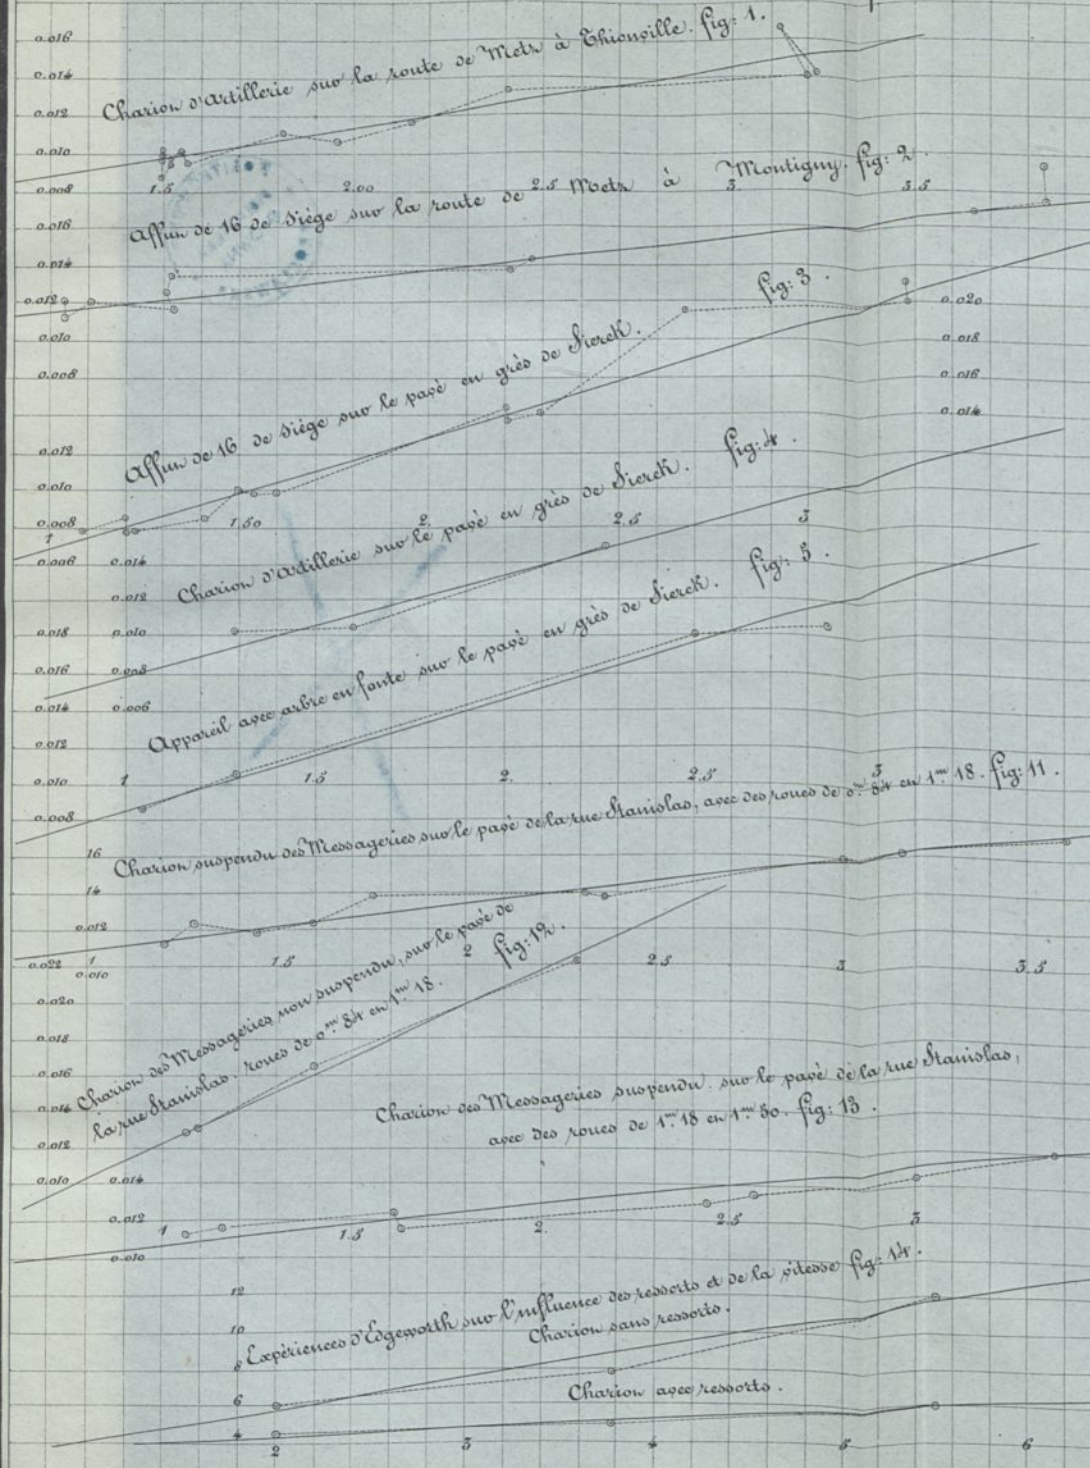 0.016
Chariot d'artillerie sur la route de Metz à Thionville. fig: 1.
0.014
0.012
0.010
0.008
1.5 2.00 2.5 3. 3.5
Affut de 16 de siège sur la route de Metz à Montigny. fig: 2.
0.016
0.014
0.012
0.010
0.008
fig: 3.
Affut de 16 de siège sur le pavé en grès de Sierck.
0.020
0.018
0.016
0.014
0.012
0.010
0.008
0.006
1 1.50 2. 2.5 3
Chariot d'artillerie sur le pavé en grès de Sierck. fig: 4.
0.014
0.012
0.010
0.008
0.006
Appareil avec arbre en fonte sur le pavé en grès de Sierck. fig: 5.
0.018
0.016
0.014
0.012
0.010
0.008
1 1.5 2. 2.5 3
Chariot suspendu des Messageries sur le pavé de la rue Stanislas, avec des roues de 0.m 84 en 1.m 18. fig: 11.
16
14
0.012
0.010
1 1.5 2 2.5 3 3.5
Chariot des Messageries non suspendu, sur le pavé de
la rue Stanislas. roues de 0.m 84 en 1.m 18. fig: 12.
0.022
0.020
0.018
0.016
0.014
0.012
0.010
Chariot des Messageries suspendu. sur le pavé de la rue Stanislas,
avec des roues de 1.m 18 en 1.m 50. fig: 13.
0.014
0.012
0.010
1 1.5 2. 2.5 3
Expériences d'Edgeworth sur l'influence des ressorts et de la vitesse fig: 14.
Chariot sans ressorts.
Chariot avec ressorts.
12
10
8
6
4
2 3 4 5 6